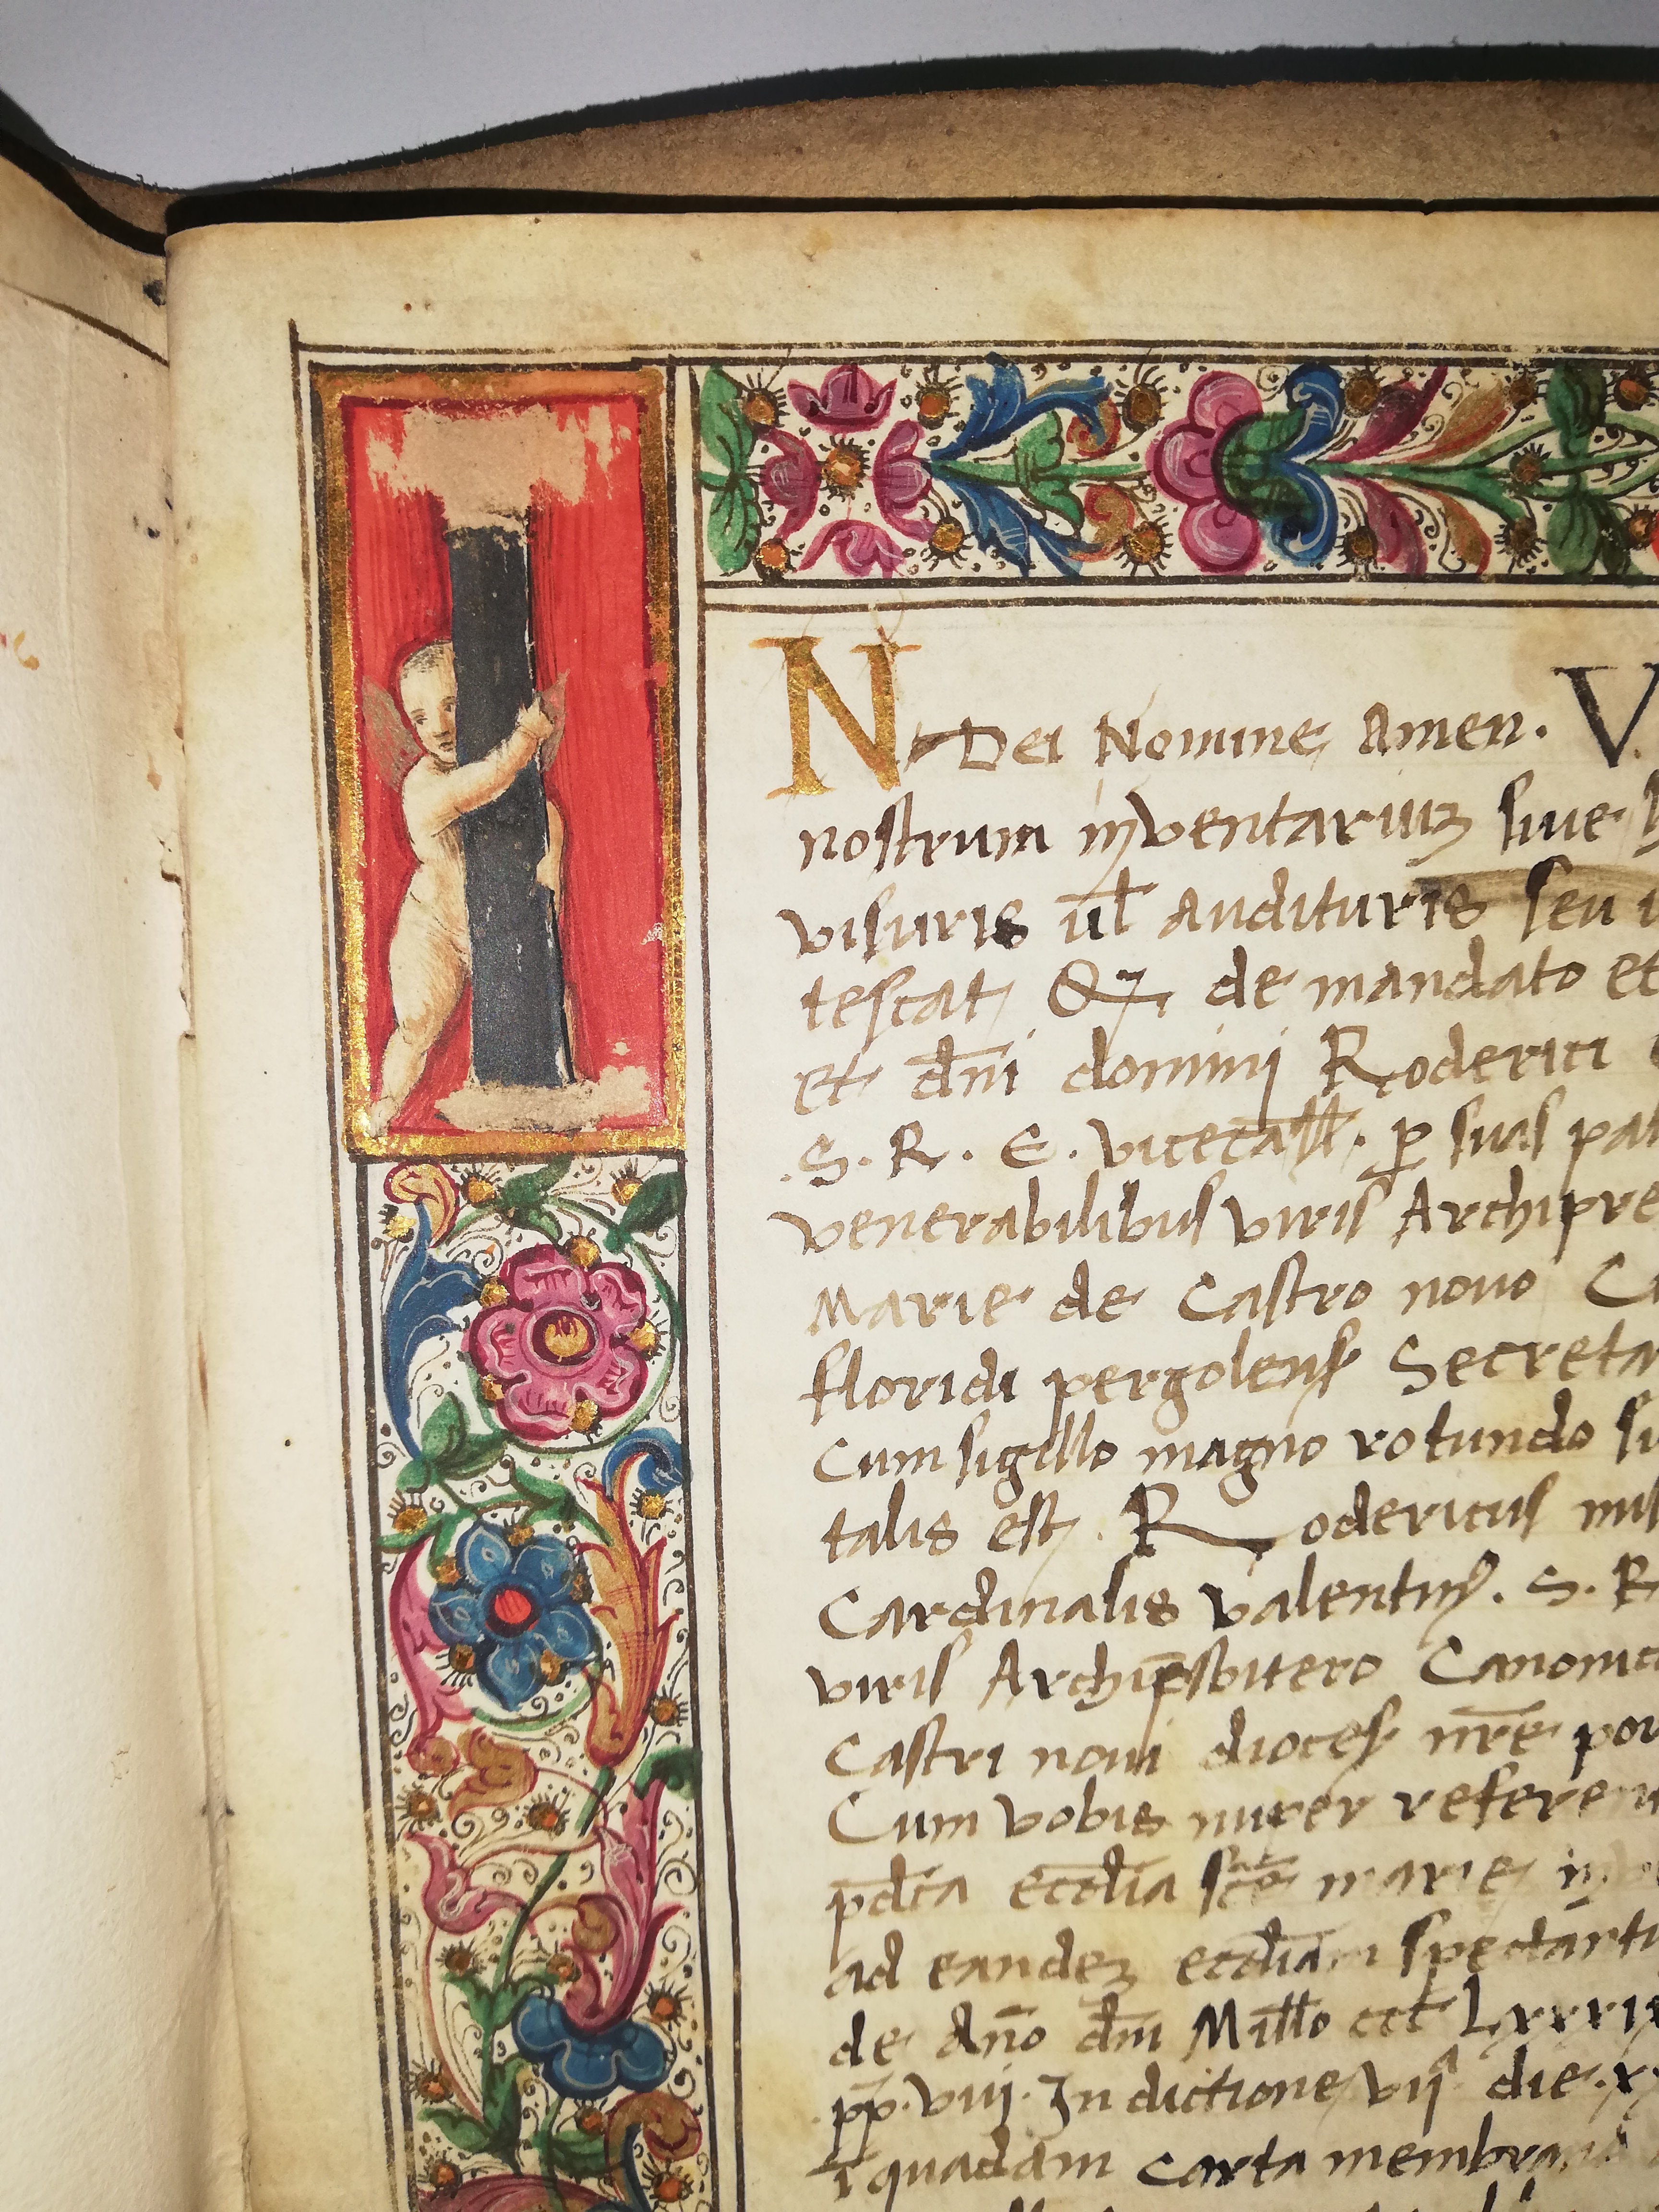 IN Dei Nomine Amen. V
nostrum inventariuz sive
visuris ul̄ audituris seu
tescat Q de mandato et
Et dn̄i dominj Roderici
.S. R. E. vicecall. p̱ suis pa
venerabilibus viris Archipre
Marie de Castro novo C
floridi pergolens Secreta
Cum sigillo magno rotundo
talis est. Rodericus
Cardinalis valentin9. S. R
viris Archip̄sbitero Canonic
Castri novi dioces nr̄e por
Cum vobis
p̄dca eccl̄ia sc̄e marie in
ad eandez eccl̄iam spectant
de An̄o dn̄i Mill̄o ccc Lxxxi
pp. viij. Indictione vijᵃ die x
ī quadam carta membrana